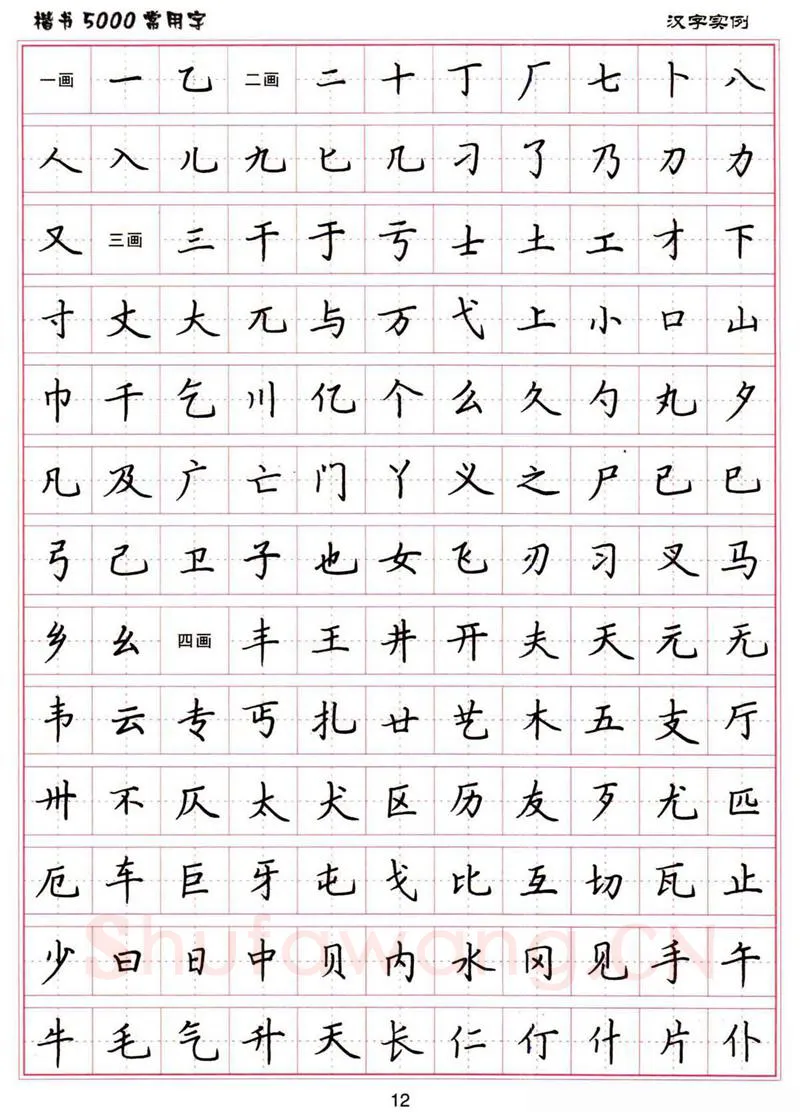 楷书5000常用字 汉字实例
一画 一 乙 二画 二 十 丁 厂 七 卜 八
人 入 儿 九 匕 几 刁 了 乃 刀 力
又 三画 三 干 于 亏 士 土 工 才 下
寸 丈 大 兀 与 万 弋 上 小 口 山
巾 千 乞 川 亿 个 么 久 勺 丸 夕
凡 及 广 亡 门 丫 义 之 尸 已 巳
弓 己 卫 子 也 女 飞 刃 习 叉 马
乡 幺 四画 丰 王 井 开 夫 天 元 无
韦 云 专 丐 扎 廿 艺 木 五 支 厅
卅 不 仄 太 犬 区 历 友 歹 尤 匹
厄 车 巨 牙 屯 戈 比 互 切 瓦 止
少 曰 日 中 贝 内 水 冈 见 手 午
Shufawang.CN
牛 毛 气 升 夭 长 仁 仃 什 片 仆
12